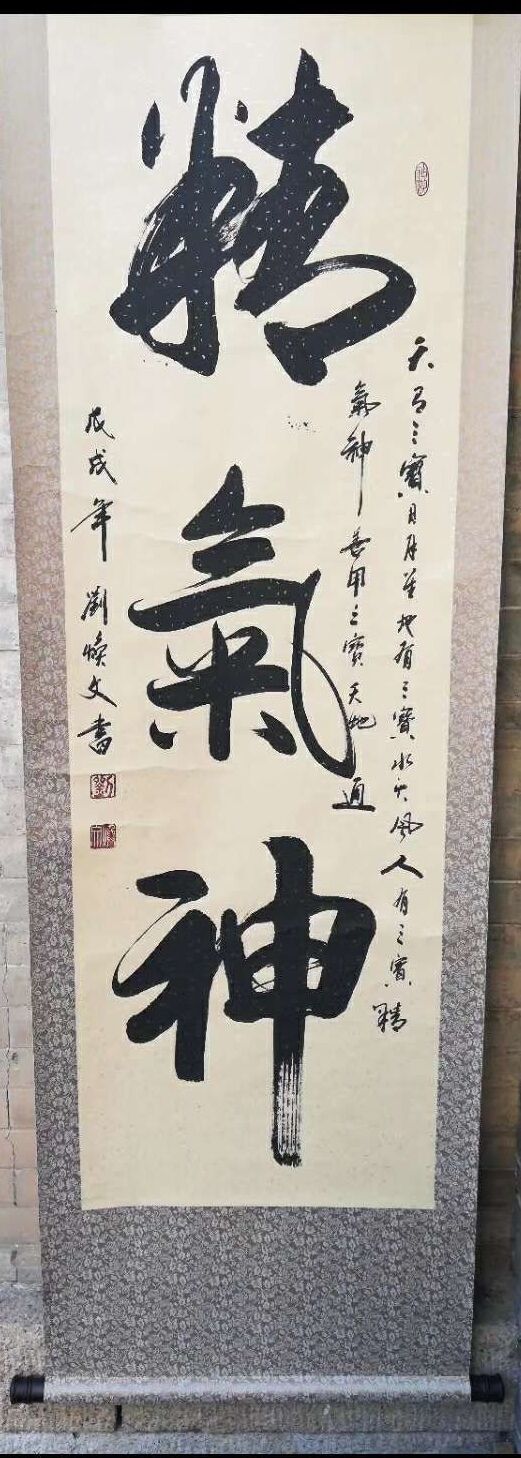 精氣神
天有三寶日月星地有三寶水火風人有三寶精
氣神善用三寶天地通
戊戌年 劉煥文書